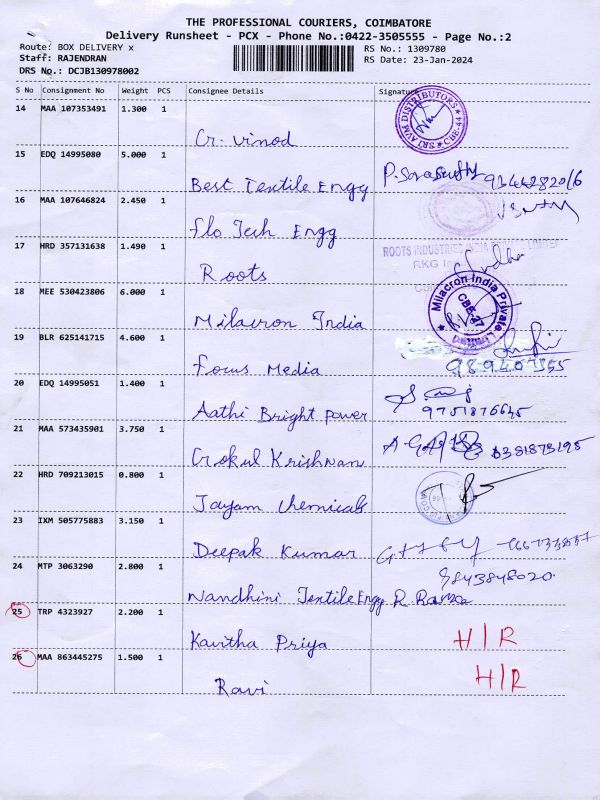 THE PROFESSIONAL COURIERS, COIMBATORE
Delivery Runsheet - PCX - Phone No.:0422-3505555 - Page No.:2
Route: BOX DELIVERY x
RS No.: 1309780
Staff: RAJENDRAN
RS Date: 23-Jan-2024
DRS No.: DCJB130978002
S No Consignment No Weight PCS Consignee Details Signature
14 MAA 107353491 1.300 1
Cr. Vinod
SRI AVM DISTRIBUTORS CBE-44
15 EDQ 14995080 5.000 1
Best Textile Engg
16 MAA 107646824 2.450 1
Flo Tech Engg
17 HRD 357131638 1.490 1
Roots
ROOTS INDUSTRIES INDIA LIMITED
18 MEE 530423806 6.000 1
Milacron India
Milacron India Private
19 BLR 625141715 4.600 1
Focus Media
20 EDQ 14995051 1.400 1
Aathi Bright power
9751876645
21 MAA 573435901 3.750 1
Gokul Krishnan
22 HRD 709213015 0.800 1
Jayam Chemicals
23 IXM 505775883 3.150 1
Deepak Kumar
24 MTP 3063290 2.800 1
9843848020
Nandhini Textile Engg
25 TRP 4323927 2.200 1
Kavitha Priya H/R
26 MAA 863445275 1.500 1
Ravi H/R